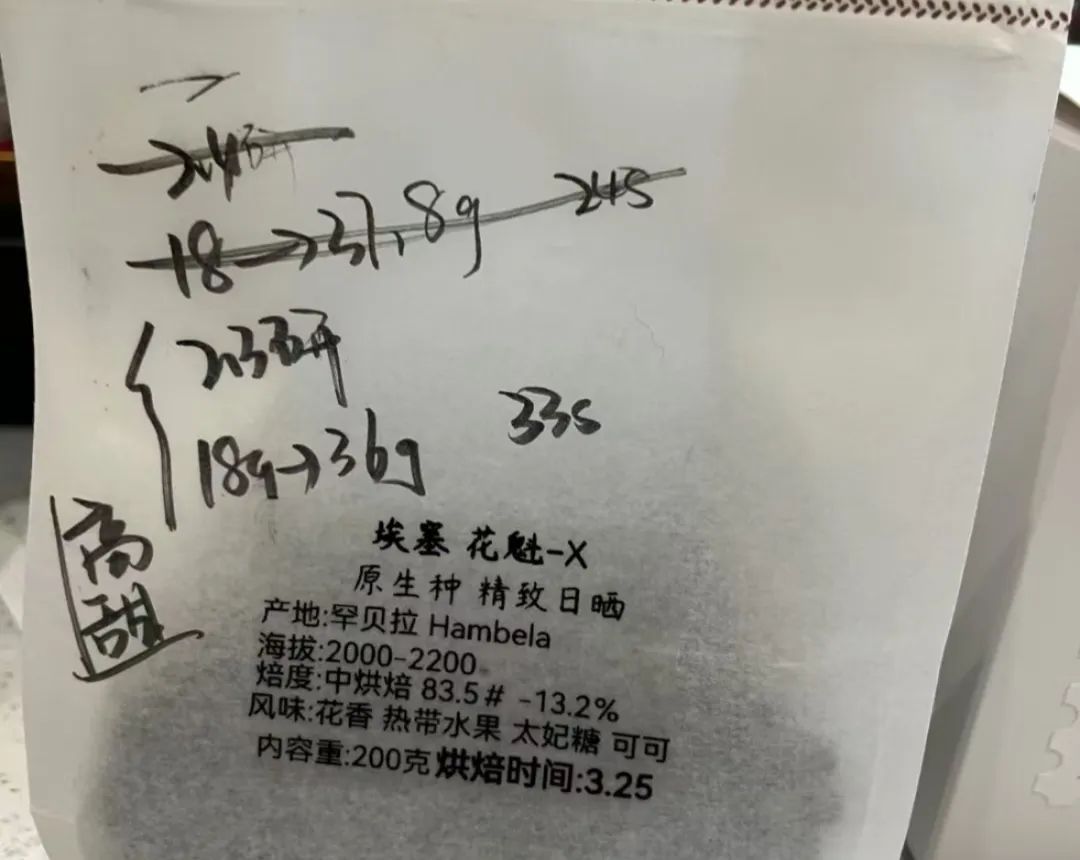 2.4研
18→37.8g 24s
2.3研
33s
18g→36g
高
甜
埃塞 花魁-X
原生种 精致日晒
产地:罕贝拉 Hambela
海拔:2000-2200
焙度:中烘焙 83.5# -13.2%
风味:花香 热带水果 太妃糖 可可
内容重:200克 烘焙时间:3.25